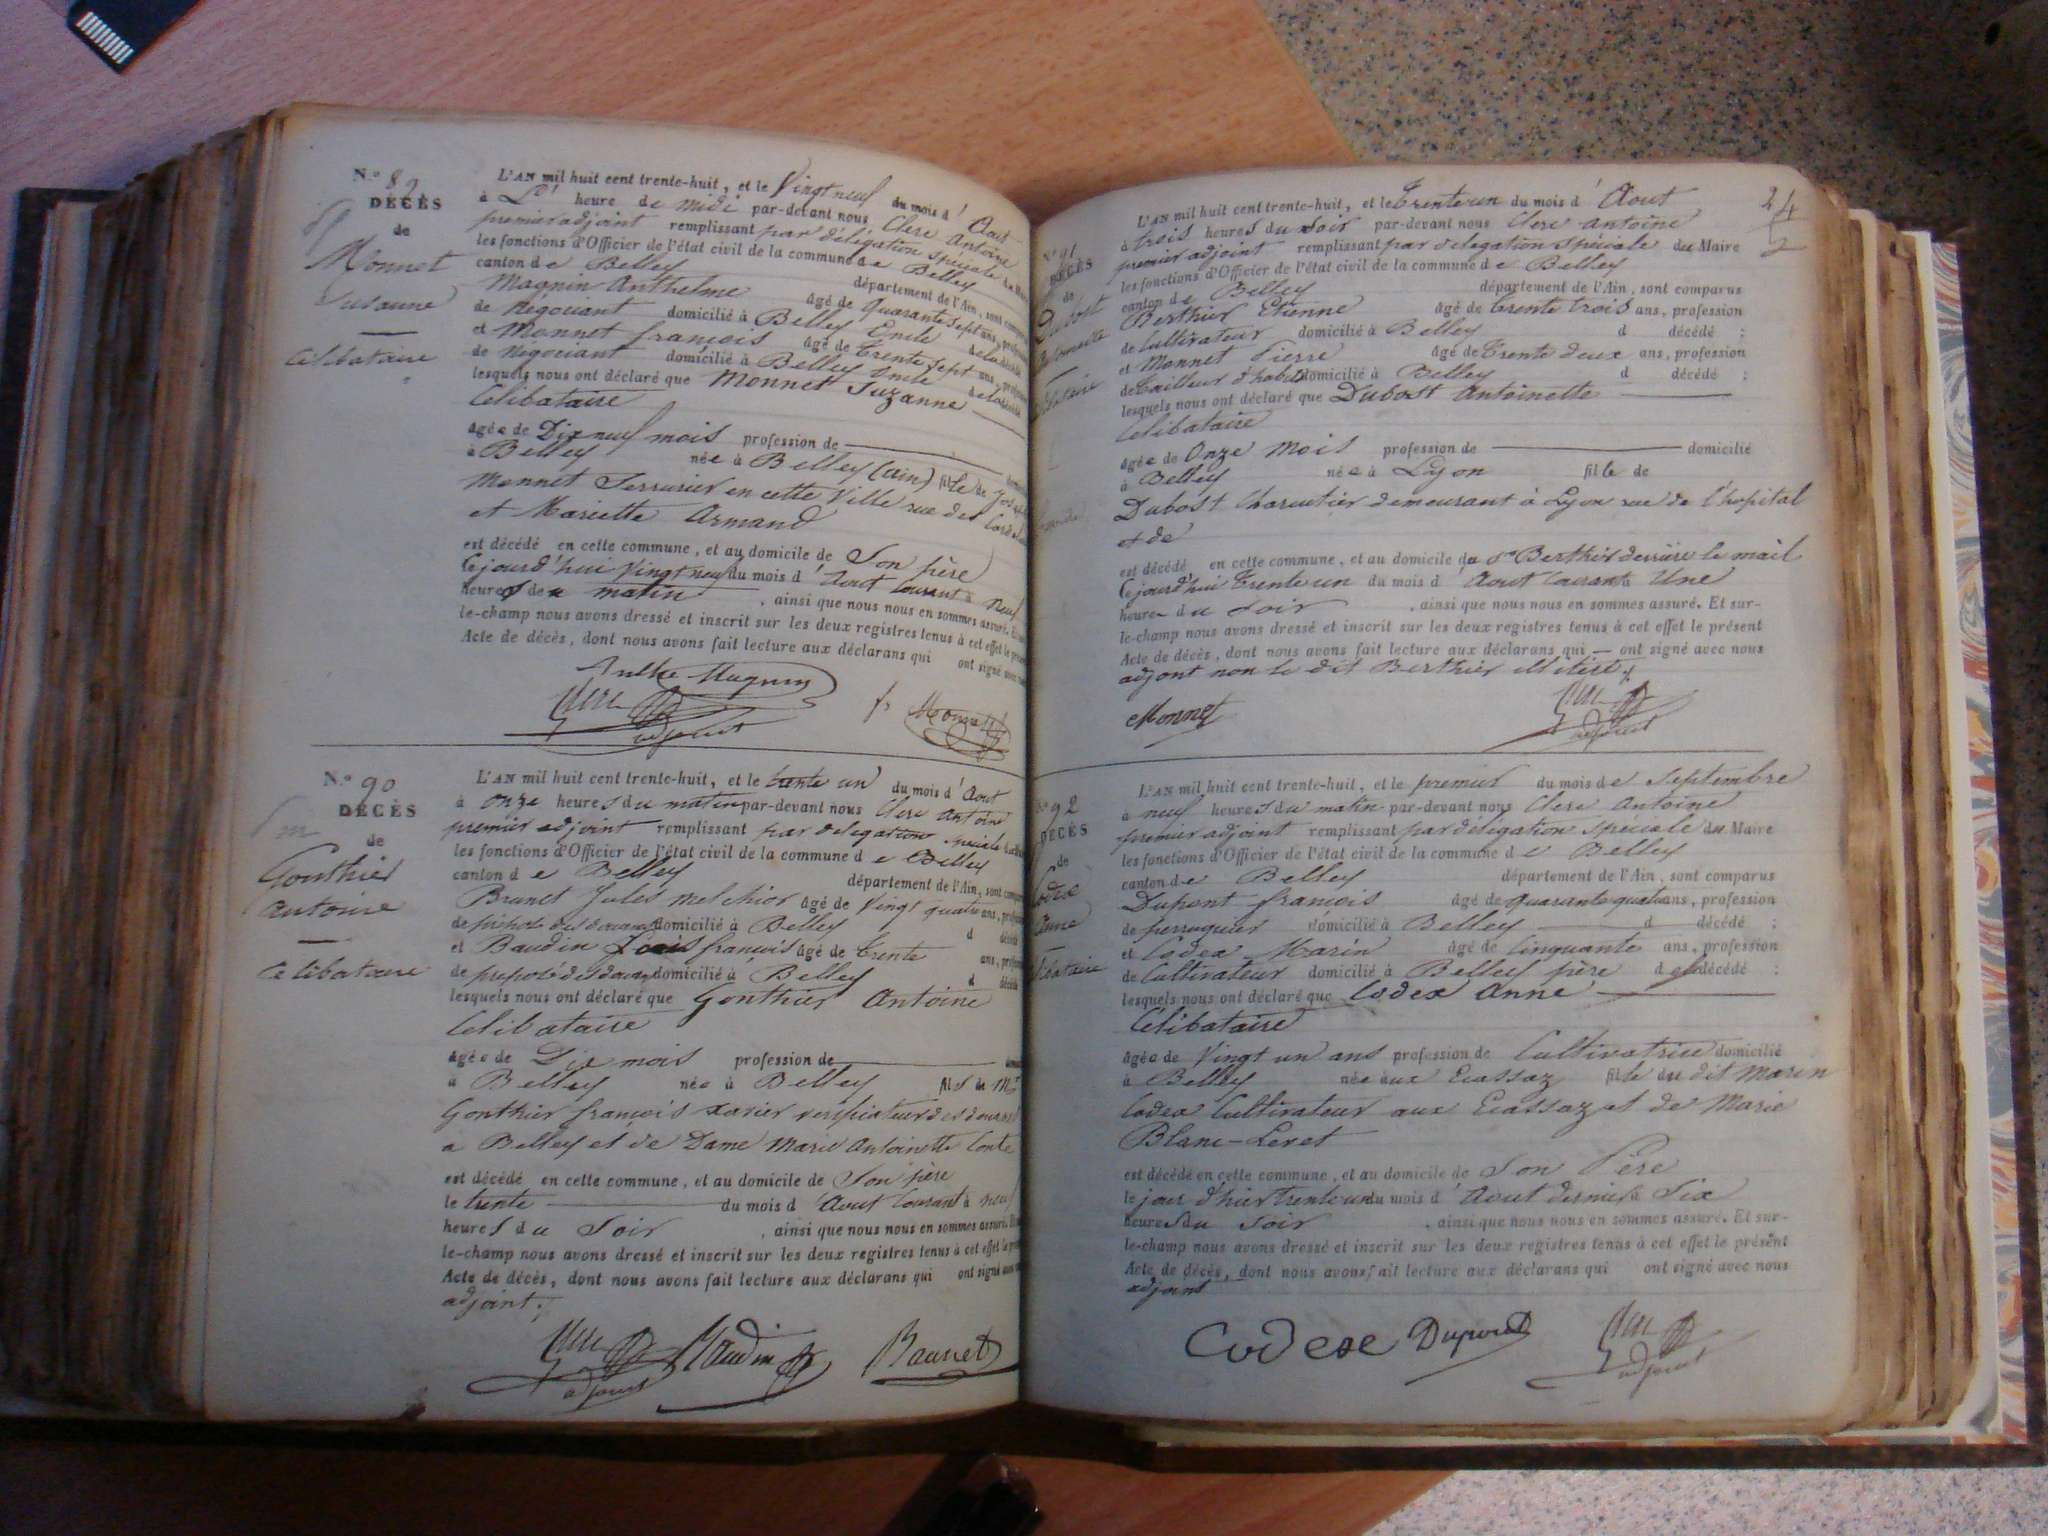 N.° 89
DÉCÈS
de
Monnet
Susanne
Célibataire
L'AN mil huit cent trente-huit, et le Vingt neuf du mois d'Aout
à heure de midi par-devant nous Clerc Antoine
premier adjoint remplissant par délégation spéciale du Maire
les fonctions d'Officier de l'état civil de la commune de Belley
canton de Belley département de l'Ain, sont
Magnin Anthelme âgé de quarante sept ans,
de Négociant domicilié à Belley
et Monnet françois âgé de Trente sept ans,
de Négociant domicilié à Belley
lesquels nous ont déclaré que Monnet Suzanne
Célibataire
âgée de Dix neuf mois profession de
à Belley née à Belley (ain) fille de
Monnet Serrurier en cette Ville rue des
et Mariette Armand
est décédé en cette commune, et au domicile de Son père
Cejourd'hui Vingt neuf du mois d'Aout Courant à neuf
heures du matin, ainsi que nous nous en sommes assuré. Et
le-champ nous avons dressé et inscrit sur les deux registres tenus à cet effet le
Acte de décès, dont nous avons fait lecture aux déclarans qui ont signé
Anthe Magnin
Clerc
adjoint
fs Monnet
N.° 90
DÉCÈS
de
Gonthier
Antoine
Célibataire
L'AN mil huit cent trente-huit, et le trente un du mois d'Aout
à onze heures du matin par-devant nous Clerc Antoine
premier adjoint remplissant par délégation spéciale
les fonctions d'Officier de l'état civil de la commune de Belley
canton de Belley département de l'Ain, sont
Brunet Jules Melchior âgé de Vingt quatre ans,
de préposé des douanes domicilié à Belley d
et Baudin Louis françois âgé de Trente ans,
de préposé des douanes domicilié à Belley d décédé
lesquels nous ont déclaré que Gonthier Antoine
Célibataire
âgée de Dix mois profession de
à Belley née à Belley fils de Mr
Gonthier françois xavier verificateur des douanes
a Belley et de Dame Marie Antoinette Conte
est décédé en cette commune, et au domicile de Son père
le trente du mois d'Aout Courant à neuf
heures du Soir, ainsi que nous nous en sommes assuré.
le-champ nous avons dressé et inscrit sur les deux registres tenus à cet effet le
Acte de décès, dont nous avons fait lecture aux déclarans qui ont signé
adjoint.
Clerc
adjoint
Baudin
Baunet
24
N° 91
DÉCÈS
de
Dubost
L'AN mil huit cent trente-huit, et le Trente un du mois d'Aout
à trois heures du soir par-devant nous Clerc Antoine
premier adjoint remplissant par délégation spéciale du Maire
les fonctions d'Officier de l'état civil de la commune de Belley
canton de Belley département de l'Ain, sont comparus
Berthier Etienne âgé de trente trois ans, profession
de Cultivateur domicilié à Belley d décédé :
et Monnet Pierre âgé de Trente deux ans, profession
de tailleur d'habits domicilié à Belley d décédé :
lesquels nous ont déclaré que Dubost Antoinette
Célibataire
âgée de Onze Mois profession de domicilié
à Belley née à Lyon fille de
Dubost Charcutier demeurant à Lyon rue de l'hopital
et de
est décédé en cette commune, et au domicile du sr Berthier derrière le mail
Cejourd'hui Trente un du mois d'Aout Courant à Une
heure du Soir, ainsi que nous nous en sommes assuré. Et sur-
le-champ nous avons dressé et inscrit sur les deux registres tenus à cet effet le présent
Acte de décès, dont nous avons fait lecture aux déclarans qui ont signé avec nous
adjont non le dit Berthier illitéré
Monnet
Clerc
adjoint
N° 92
DÉCÈS
de
Codex
Anne
L'AN mil huit cent trente-huit, et le premier du mois de Septembre
à neuf heures du matin par-devant nous Clerc Antoine
premier adjoint remplissant par délégation spéciale du Maire
les fonctions d'Officier de l'état civil de la commune de Belley
canton de Belley département de l'Ain, sont comparus
Dupont françois âgé de quarante quatre ans, profession
de perruquier domicilié à Belley d décédé :
et Codex Marin âgé de Cinquante ans, profession
de Cultivateur domicilié à Belley père de la décédé :
lesquels nous ont déclaré que Codex Anne
Célibataire
âgée de Vingt un ans profession de Cultivatrice domicilié
à Belley née aux Ecassaz fille du dit Marin
Codex Cultivateur aux Ecassaz et de Marie
Blanc-Levet
est décédé en cette commune, et au domicile de Son Père
le jour d'hier trente un du mois d'Aout dernier à Six
heures du Soir, ainsi que nous nous en sommes assuré. Et sur-
le-champ nous avons dressé et inscrit sur les deux registres tenus à cet effet le présent
Acte de décès, dont nous avons fait lecture aux déclarans qui ont signé avec nous
adjoint
Codexe Dupont
Clerc
adjoint